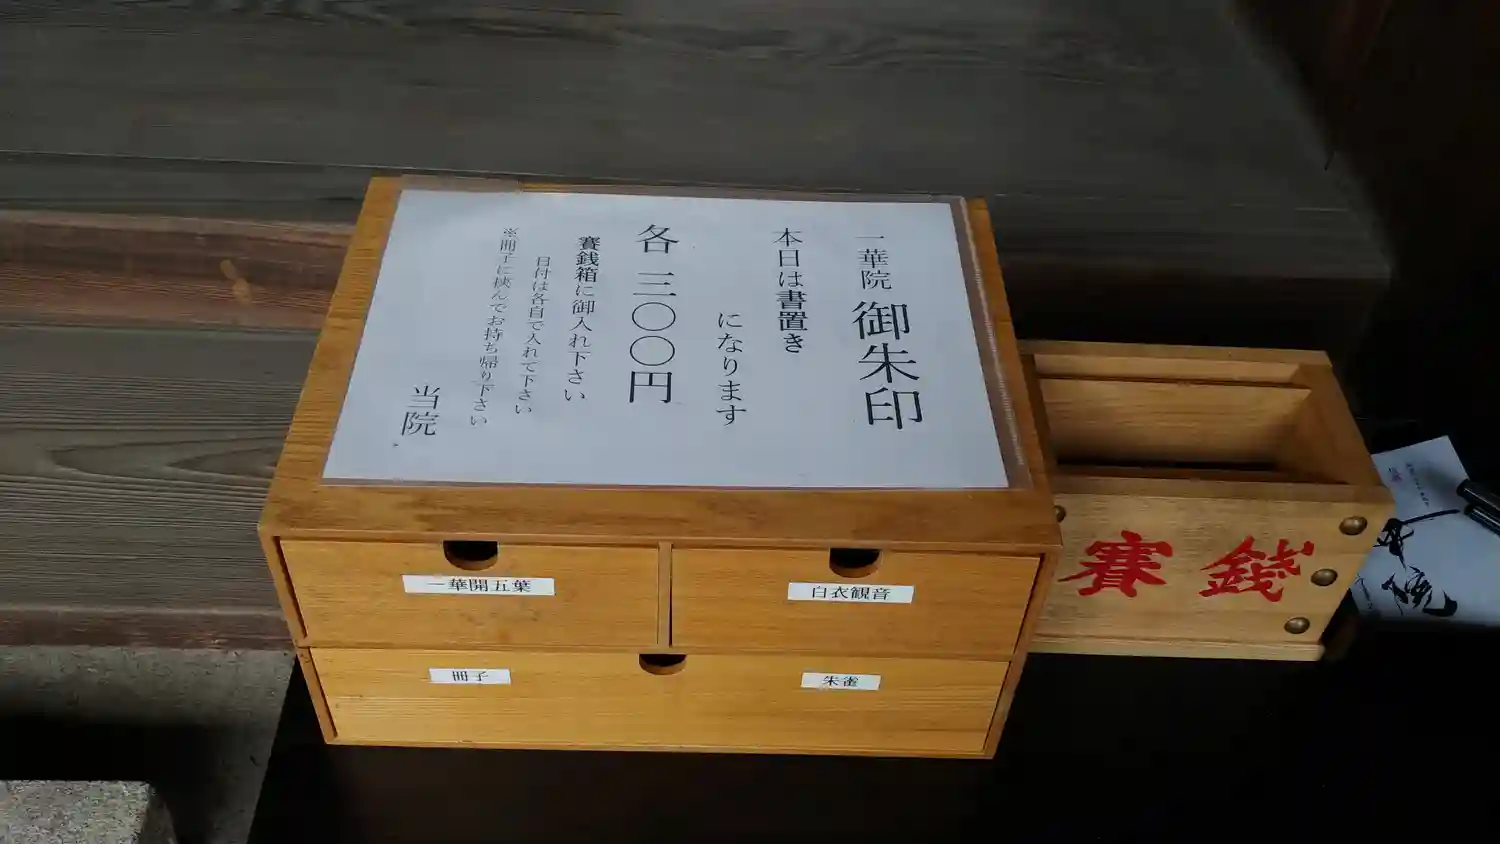 一華院 御朱印
本日は書置き
になります
各 三〇〇円
賽銭箱に御入れ下さい
日付は各自で入れて下さい
※冊子に挟んでお持ち帰り下さい
当院
一華開五葉
白衣観音
冊子
朱雀
賽銭